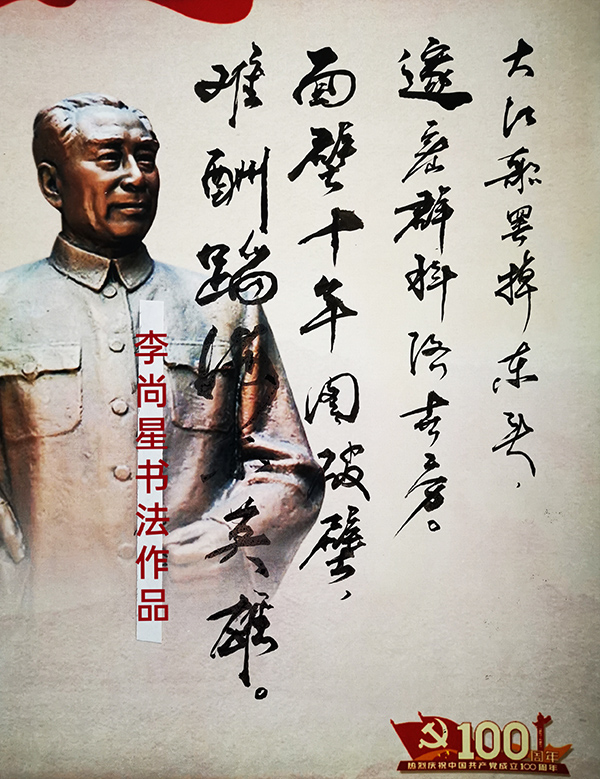 大江歌罢掉东头,
邃密群科济世穷。
面壁十年图破壁,
难酬蹈海亦英雄。
李尚星书法作品
100周年
热烈庆祝中国共产党成立100周年